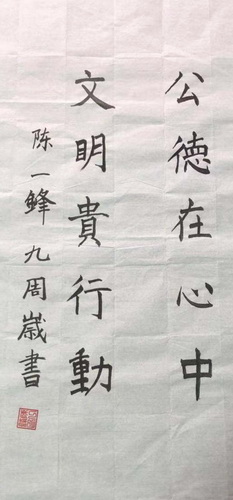 公德在心中
文明貴行動
陈一蜂九周歲書